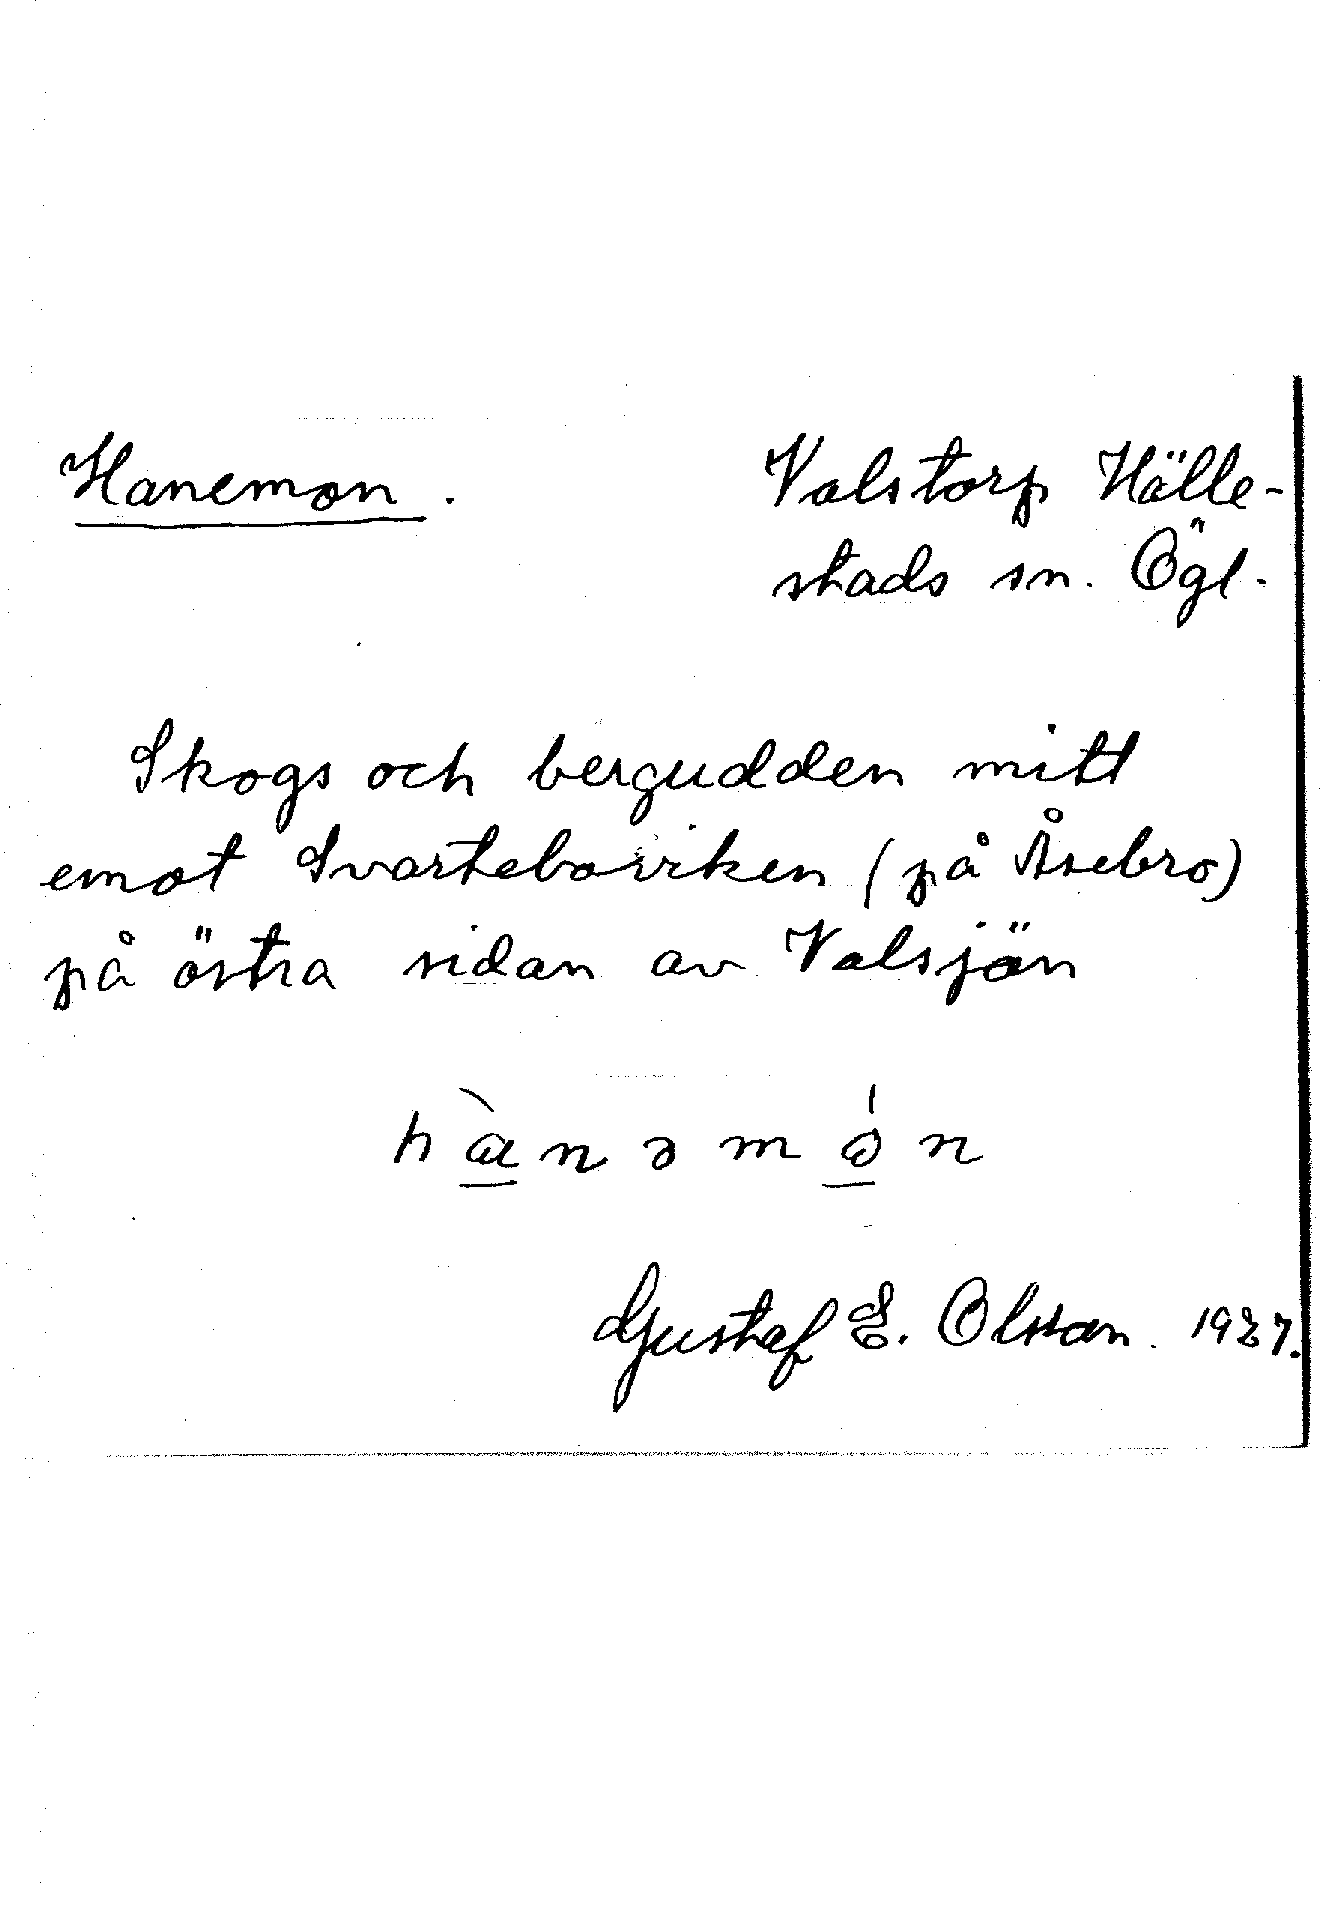 Hanemon. Valstorp Hälle-
stads sn. Ögl.
Skogs och bergudden mitt
emot Svarteboviken (på Åsebro)
på östra sidan av Valsjön
hànəmón
Gustaf E. Olsson. 1927.